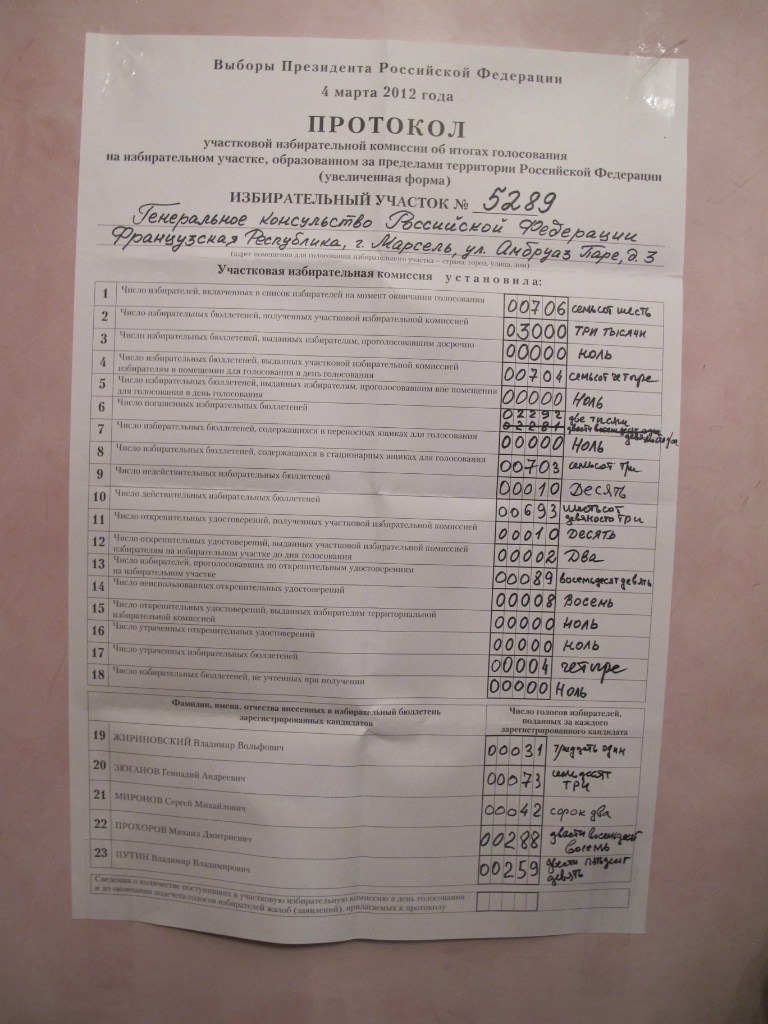 Выборы Президента Российской Федерации
4 марта 2012 года
ПРОТОКОЛ
участковой избирательной комиссии об итогах голосования
на избирательном участке, образованном за пределами территории Российской Федерации
(увеличенная форма)
ИЗБИРАТЕЛЬНЫЙ УЧАСТОК № 5289
Генеральное консульство Российской Федерации
Французская Республика, г. Марсель, ул. Амбруаз Паре, д. 3
(адрес помещения для голосования избирательного участка – страна, город, улица, дом)
Участковая избирательная комиссия установила:
1 Число избирателей, включенных в список избирателей на момент окончания голосования 00706 семьсот шесть
2 Число избирательных бюллетеней, полученных участковой избирательной комиссией 03000 три тысячи
3 Число избирательных бюллетеней, выданных избирателям, проголосовавшим досрочно 00000 ноль
4 Число избирательных бюллетеней, выданных участковой избирательной комиссией
избирателям в помещении для голосования в день голосования 00704 семьсот четыре
5 Число избирательных бюллетеней, выданных избирателям, проголосовавшим вне помещения
для голосования в день голосования 00000 Ноль
6 Число погашенных избирательных бюллетеней 02292 две тысячи
02281 двести восемьдесят один девяносто два
7 Число избирательных бюллетеней, содержащихся в переносных ящиках для голосования 00000 Ноль
8 Число избирательных бюллетеней, содержащихся в стационарных ящиках для голосования 00703 семьсот три
9 Число недействительных избирательных бюллетеней 00010 Десять
10 Число действительных избирательных бюллетеней 00693 шестьсот
девяносто три
11 Число открепительных удостоверений, полученных участковой избирательной комиссией 00010 Десять
12 Число открепительных удостоверений, выданных участковой избирательной комиссией
избирателям на избирательном участке до дня голосования 00002 Два
13 Число избирателей, проголосовавших по открепительным удостоверениям
на избирательном участке 00089 восемьдесят девять
14 Число неиспользованных открепительных удостоверений 00008 Восемь
15 Число открепительных удостоверений, выданных избирателям территориальной
избирательной комиссией 00000 Ноль
16 Число утраченных открепительных удостоверений 00000 Ноль
17 Число утраченных избирательных бюллетеней 00004 четыре
18 Число избирательных бюллетеней, не учтенных при получении 00000 Ноль
Фамилии, имена, отчества внесенных в избирательный бюллетень
зарегистрированных кандидатов
Число голосов избирателей,
поданных за каждого
зарегистрированного кандидата
19 ЖИРИНОВСКИЙ Владимир Вольфович 00031 тридцать один
20 ЗЮГАНОВ Геннадий Андреевич 00073 семьдесят
три
21 МИРОНОВ Сергей Михайлович 00042 сорок два
22 ПРОХОРОВ Михаил Дмитриевич 00288 двести восемьдесят
восемь
23 ПУТИН Владимир Владимирович 00259 двести пятьдесят
девять
Сведения о количестве поступивших в участковую избирательную комиссию в день голосования
и до окончания подсчета голосов избирателей жалоб (заявлений), прилагаемых к протоколу